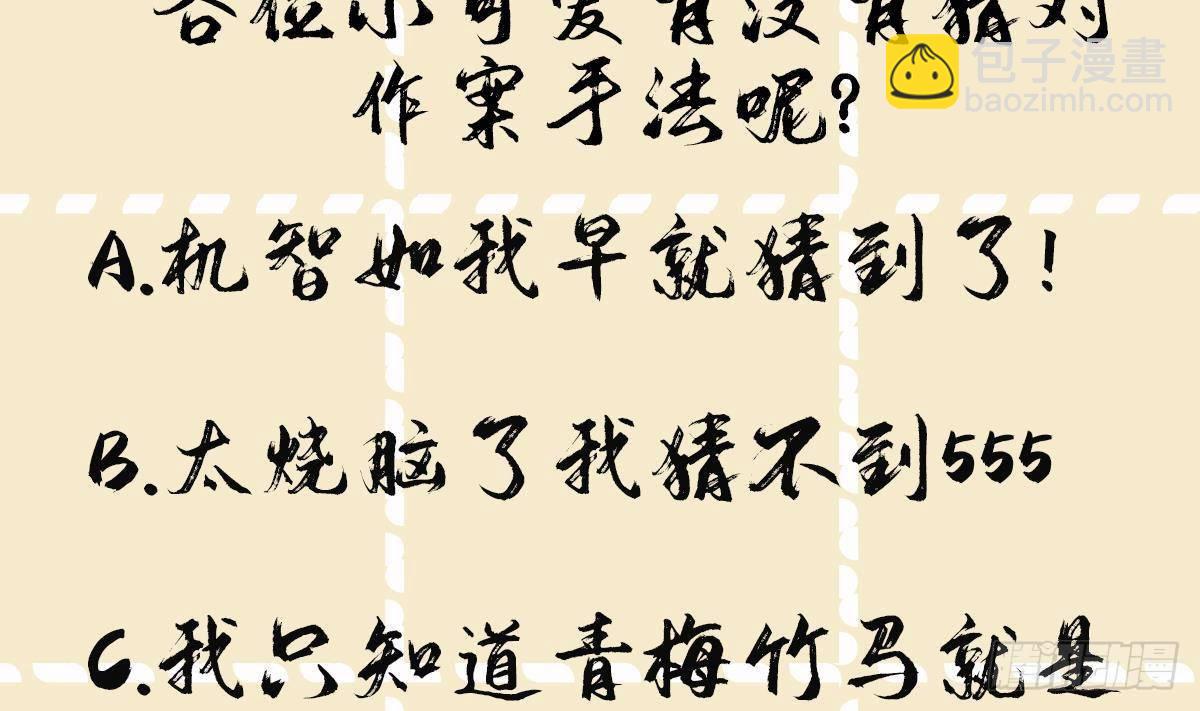 各位小可爱有没有猜对
作案手法呢?
包子漫畫
baozimh.com
A.机智如我早就猜到了!
B.太烧脑了我猜不到555
C.我只知道青梅竹马就是